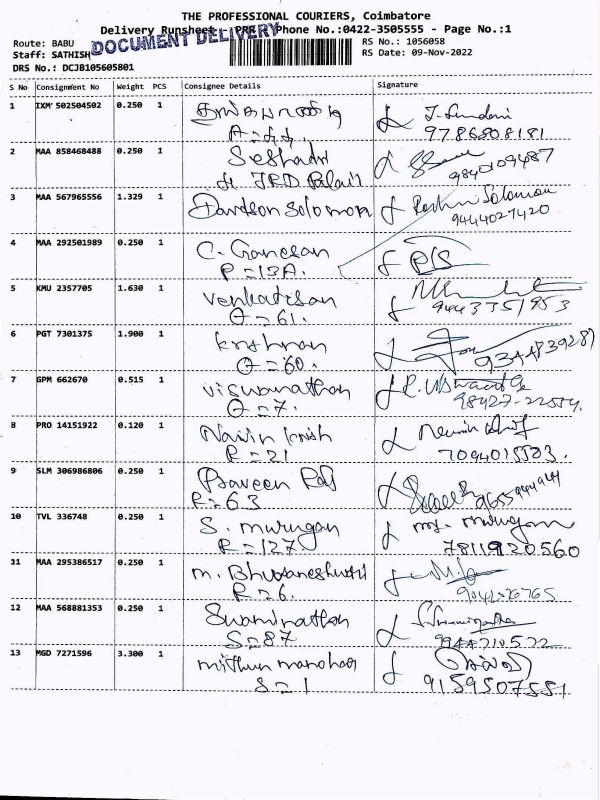 THE PROFESSIONAL COURIERS, Coimbatore
Delivery Runsheet - PRE Phone No.:0422-3505555 - Page No.:1
DOCUMENT DELIVERY
Route: BABU
RS No.: 1056058
Staff: SATHISH
RS Date: 09-Nov-2022
DRS No.: DCJB105605801
S No Consignment No Weight PCS Consignee Details Signature
1 IXM 502504502 0.250 1
9786808181
2 MAA 858468488 0.250 1 Seshadri
9840109487
3 MAA 567965556 1.329 1 Davidson Solomon Solomon
9444027420
4 MAA 292501989 0.250 1 C. Ganesan
P = 13A.
5 KMU 2357705 1.630 1 Venkatesan
Q = 61. 9443351953
6 PGT 7301375 1.900 1 Krishnan
Q = 60.
7 GPM 662670 0.515 1 Viswanathan
Q = 7.
8 PRO 14151922 0.120 1 Navin Krish
R = 21
9 SLM 306986806 0.250 1 Praveen Raj
R = 63
10 TVL 336748 0.250 1 S. Murugan
R = 127 7811920560
11 MAA 295386517 0.250 1 M. Bhuvaneshwari
R = 6.
12 MAA 568881353 0.250 1 Swaminathan
S = 87 9944210522
13 MGD 7271596 3.300 1 Mithun Manohar
S = 1 9159507551